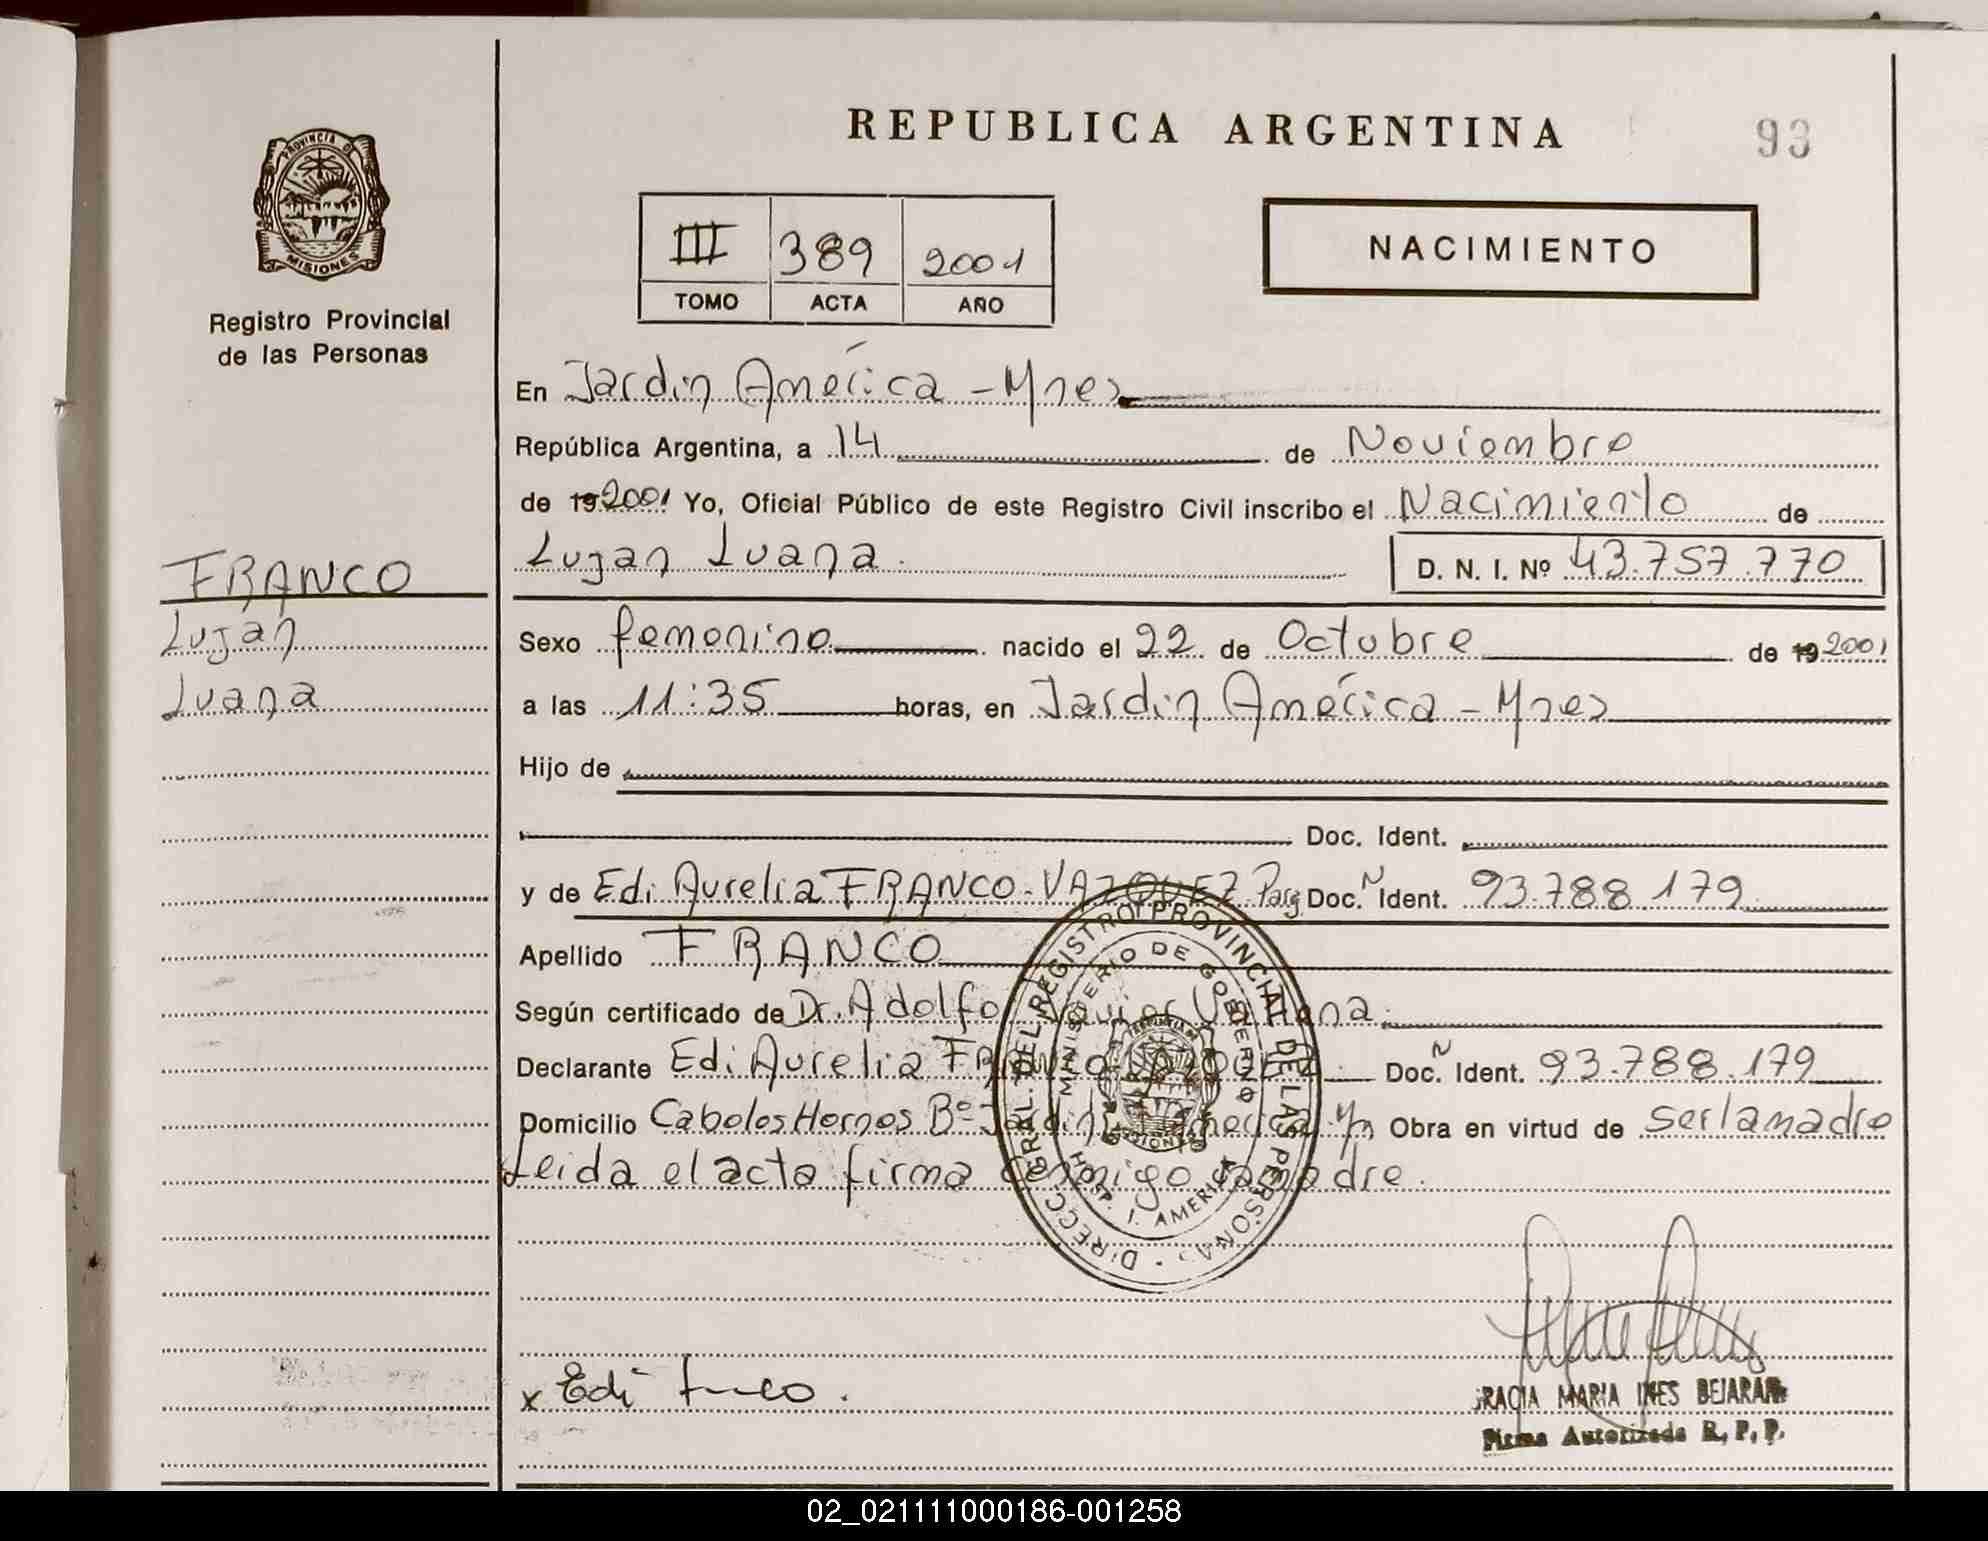 REPUBLICA ARGENTINA
93
PROVINCIA DE
MISIONES
Registro Provincial
de las Personas
III 389 2001
TOMO ACTA AÑO
NACIMIENTO
En Jardin América - Mnes
República Argentina, a 14 de Noviembre
de 19 2001 Yo, Oficial Público de este Registro Civil inscribo el Nacimiento de
Lujan Luana.
D. N. I. Nº 43.757.770
FRANCO
Lujan
Luana
Sexo femenino nacido el 22 de Octubre de 19 2001
a las 11:35 horas, en Jardin América - Mnes
Hijo de
Doc. Ident.
y de Edi Aurelia FRANCO-VAZQUEZ Parg Doc. N Ident. 93.788.179
Apellido FRANCO
Según certificado de Dr. Adolfo Javier
Declarante Edi Aurelia FRANCO VAZQUEZ Doc. N Ident. 93.788.179
Domicilio Cabolos Hornos Bº Jardin América Obra en virtud de ser la madre
Leida el acta firma conmigo la madre.
DIRECC. GRAL. DEL REGISTRO PROVINCIAL DE LAS PERSONAS
MINISTERIO DE GOBIERNO
HOSP. J. AMERICA
MISIONES
x Edi
GRACIA MARIA INES BEJARANO
Firma Autorizada R. P. P.
02_021111000186-001258